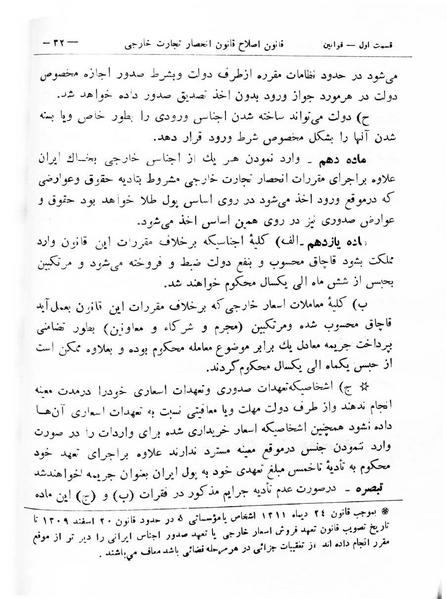 قسمت اول — قوانین    قانون اصلاح قانون انحصار تجارت خارجی    — ۳۲ —
می‌شود در حدود نظامات مقرره ازطرف دولت وبشرط صدور اجازه مخصوص
دولت در هرمورد جواز ورود بدون اخذ تصدیق صدور داده خواهد شد.
ح) دولت می‌تواند ساخته شدن اجناس ورودی را بطور خاص ویا بسته
شدن آنها را بشکل مخصوص شرط ورود قرار دهد.
ماده دهم - وارد نمودن هر یك از اجناس خارجی بخاك ایران
علاوه براجرای مقررات انحصار تجارت خارجی مشروط بتادیه حقوق وعوارضی
که درموقع ورود اخذ می‌شود در روی اساس پول طلا خواهد بود حقوق و
عوارض صدوری نیز در روی همین اساس اخذ می‌شود.
ماده یازدهم - الف) کلیهٔ اجناسیکه برخلاف مقررات این قانون وارد
مملکت بشود قاچاق محسوب و بنفع دولت ضبط و فروخته می‌شود و مرتکبین
بحبس از شش ماه الی یکسال محکوم خواهند شد.
ب) کلیهٔ معاملات اسعار خارجی که برخلاف مقررات این قانون بعمل‌آید
قاچاق محسوب شده ومرتکبین (مجرم و شرکاء و معاونین) بطور تضامنی
بپرداخت جریمه معادل یك برابر موضوع معامله محکوم بوده و بعلاوه ممکن است
از حبس یکماه الی یکسال محکوم‌گردند.
* ج) اشخاصیکه‌تعهدات صدوری وتعهدات اسعاری خودرا درمدت معینه
انجام ندهند واز طرف دولت مهلت ویا معافیتی نسبت به تعهدات اسعاری آن‌ها
داده نشود همچنین اشخاصیکه اسعار خریداری شده برای واردات را در صورت
وارد ننمودن جنس درموقع معینه مسترد ندارند علاوه براجرای تعهد خود
محکوم به تأدیهٔ تاخمس مبلغ تعهدی خود به پول ایران بعنوان جریمه خواهندشد
تبصره - درصورت عدم تأدیه جرایم مذکور در فقرات (ب) و (ج) این ماده
* بموجب قانون ۲۴ دیماه ۱۳۱۱ اشخاص یامؤسساتی که در حدود قانون ۲۰ اسفند ۱۳۰۹ تا
تاریخ تصویب قانون تعهد فروش اسعار خارجی یا تعهد صدور اجناس ایرانی را دیر تر از موقع
مقرر انجام داده اند ، از تعقیبات جزائی در هرمرحله قضائی باشد معاف می‌باشند .